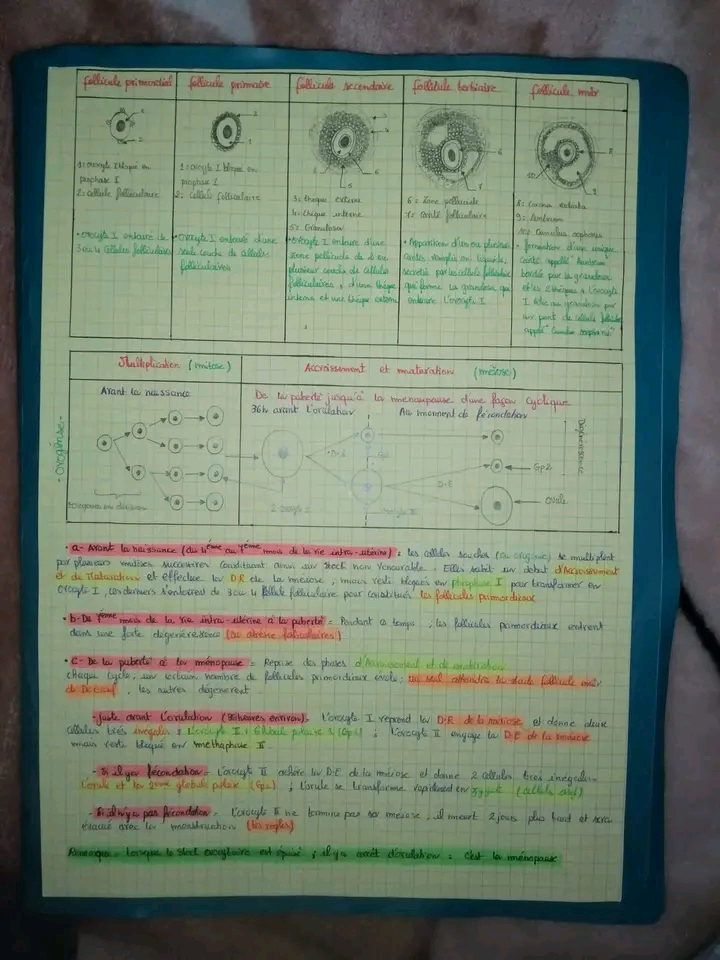 follicule primordial
follicule primaire
follicule secondaire
follicule tertiaire
follicule mûr
1: ovocyte I bloqué en
prophase I
2: cellule folliculaire
1: ovocyte I bloqué en
prophase I
2: cellule folliculaire
3: thèque externe
4: thèque interne
5: Granulosa
6: zone pellucide
7: cavité folliculaire
8: corona radiata
9: antrum
10: cumulus oophorus
• ovocyte I entouré de
3 ou 4 cellules folliculaires
• ovocyte I entouré d'une
seule couche de cellules
folliculaires
• ovocyte I entouré d'une
zone pellucide de 2 ou
plusieurs couche de cellules
folliculaires, d'une thèque
interne et une thèque externe
• Apparition d'un ou plusieurs
cavités remplis en liquide,
secrété par les cellules folliculaire
qui forme la granulosa qui
entoure l'ovocyte I
• formation d'une unique
cavité appellé "Antrum"
bordée par la granulosa
et les 2 thèques. L'ovocyte
I relié au granulosa par
un pont de cellule folliculaire
appelé "cumulus oophorus"
Multiplication (mitose)
Accroissement et maturation (méiose)
- ovogénèse -
Avant la naissance
De la puberté jusqu'à la ménaupause d'une façon cyclique
36h avant l'ovulation
Au moment de fécondation
D.R
Gp1
D.E
Gp2
Ovule
Dégénérescence
ovogonie en division
2 ovocyte I
ovocyte II
• a- Avant la naissance (du 4ème au 7ème mois de la vie intra-utérine) : les cellules souches (ou ovogonie) se multiplient
par plusieurs mitoses successives conduisant ainsi un stock non renouvrable. Elles subit un début d'Accroissement
et de Maturation et effectue la D.R de la méiose, mais reste bloqués en prophase I pour transformer en
ovocyte I, ces derniers s'entourent de 3 ou 4 follicule folliculaire pour constitués les follicules primordiaux
• b- De 7ème mois de la vie intra-utérine à la puberté = Pendant ce temps, les follicules primordiaux entrent
dans une forte dégénérescence (ou atrésie foliculaires)
• C- De la puberté à la ménopause = Repose des phases d'Accroissement et de maturation
chaque cycle, un certain nombre de follicules primordiaux évolue, un seul atteindre la stade follicule mûr
de De Graaf, les autres dégénèrent
- Juste avant l'ovulation (36 heures environ)- l'ovocyte I reprend la D.R de la méiose et donne deux
cellules très inégales : l'ovocyte II + Globule polaire 1 (Gp1) ; l'ovocyte II engage la D.E de la méiose
mais reste bloqué en métaphase II
- Si il y a fécondation - L'ovocyte II achève la D.E de la méiose et donne 2 cellules très inégales
L'ovule et le 2ème globule polaire (Gp2) ; L'ovule se transforme rapidement en Zygote (cellule œuf)
- Si il n'y a pas fécondation - L'ovocyte II ne termine pas sa méiose, il meurt 2 jours plus tard et sera
évacué avec la menstruation (les règles)
Remarque = Lorsque le stock ovocytaire est épuisé ; il y a arrêt d'ovulation : c'est la ménopause